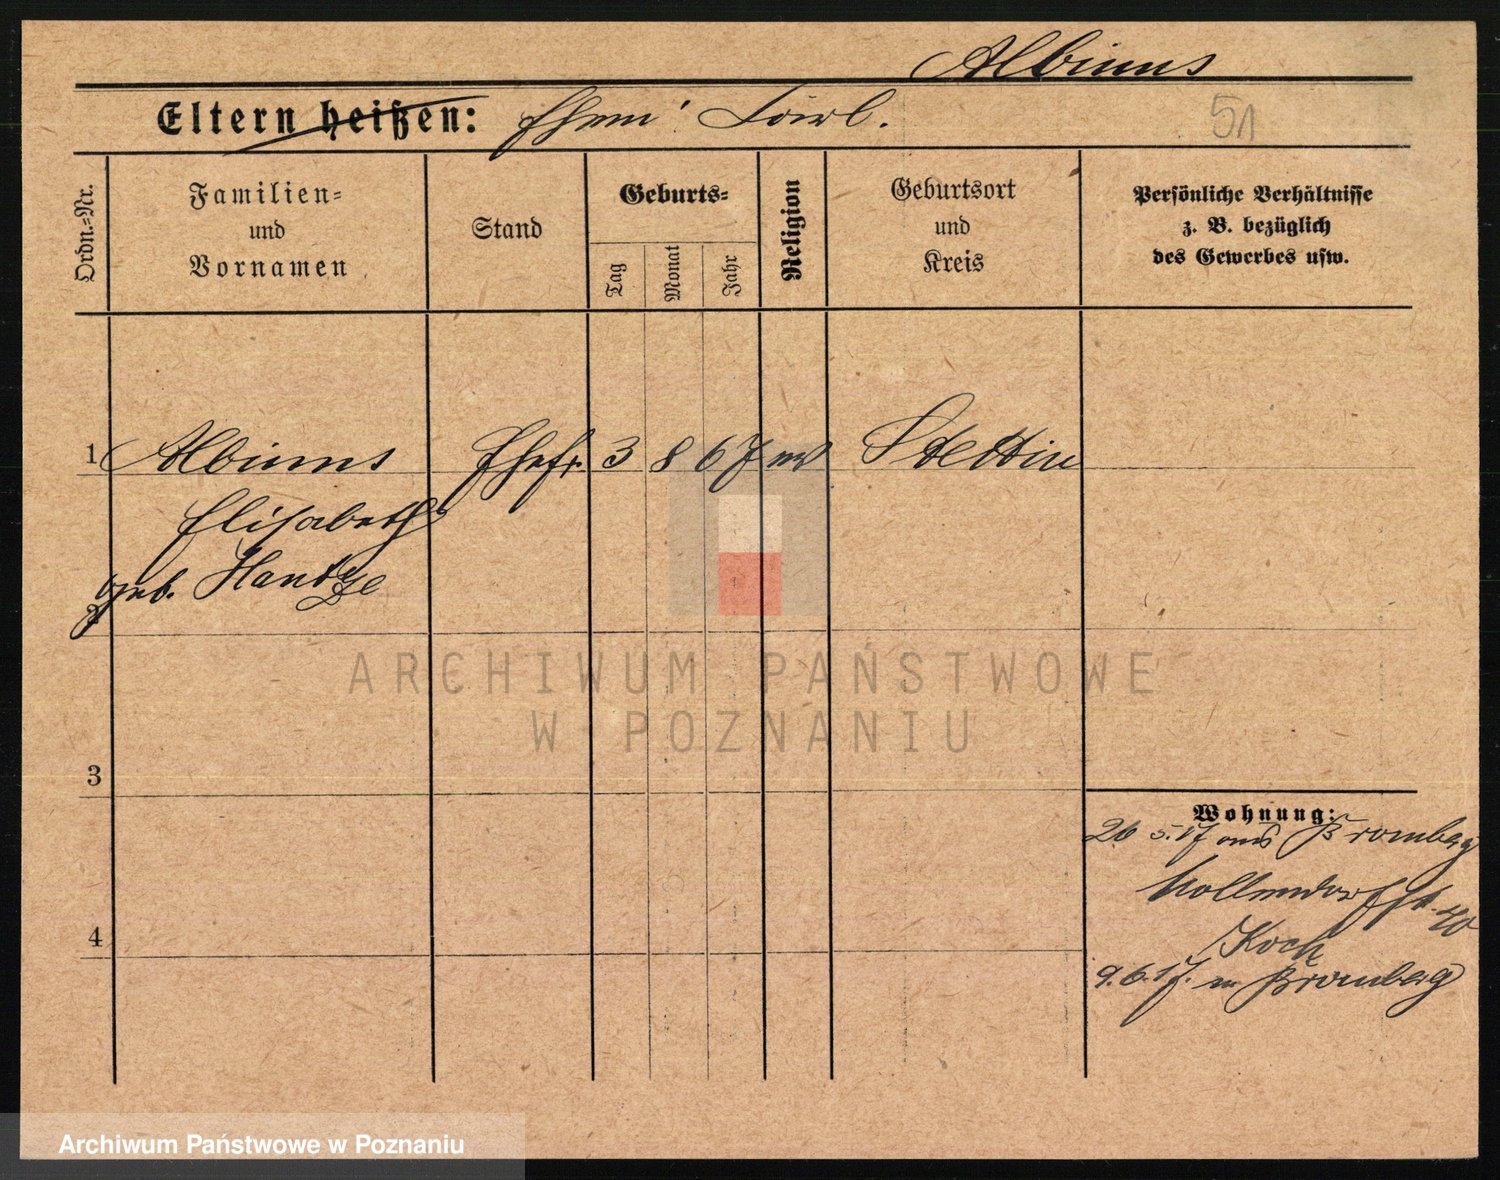 Albinus
Eltern heißen: Ehem: Karl.
51
Ordn.=Nr.
Familien=
und
Vornamen
Stand
Geburts=
Tag
Monat
Jahr
Religion
Geburtsort
und
Kreis
Persönliche Verhältnisse
z. B. bezüglich
des Gewerbes usw.
1 Albinus Ehefr. 3 8 67 ev Stettin
Elisabeth
geb. Hantze
2
ARCHIWUM PAŃSTWOWE
W POZNANIU
3
Wohnung:
26 5. 17 aus Bromberg
Nollendorfst. 40
Koch
4
9. 6. 17. n Bromberg
Archiwum Państwowe w Poznaniu